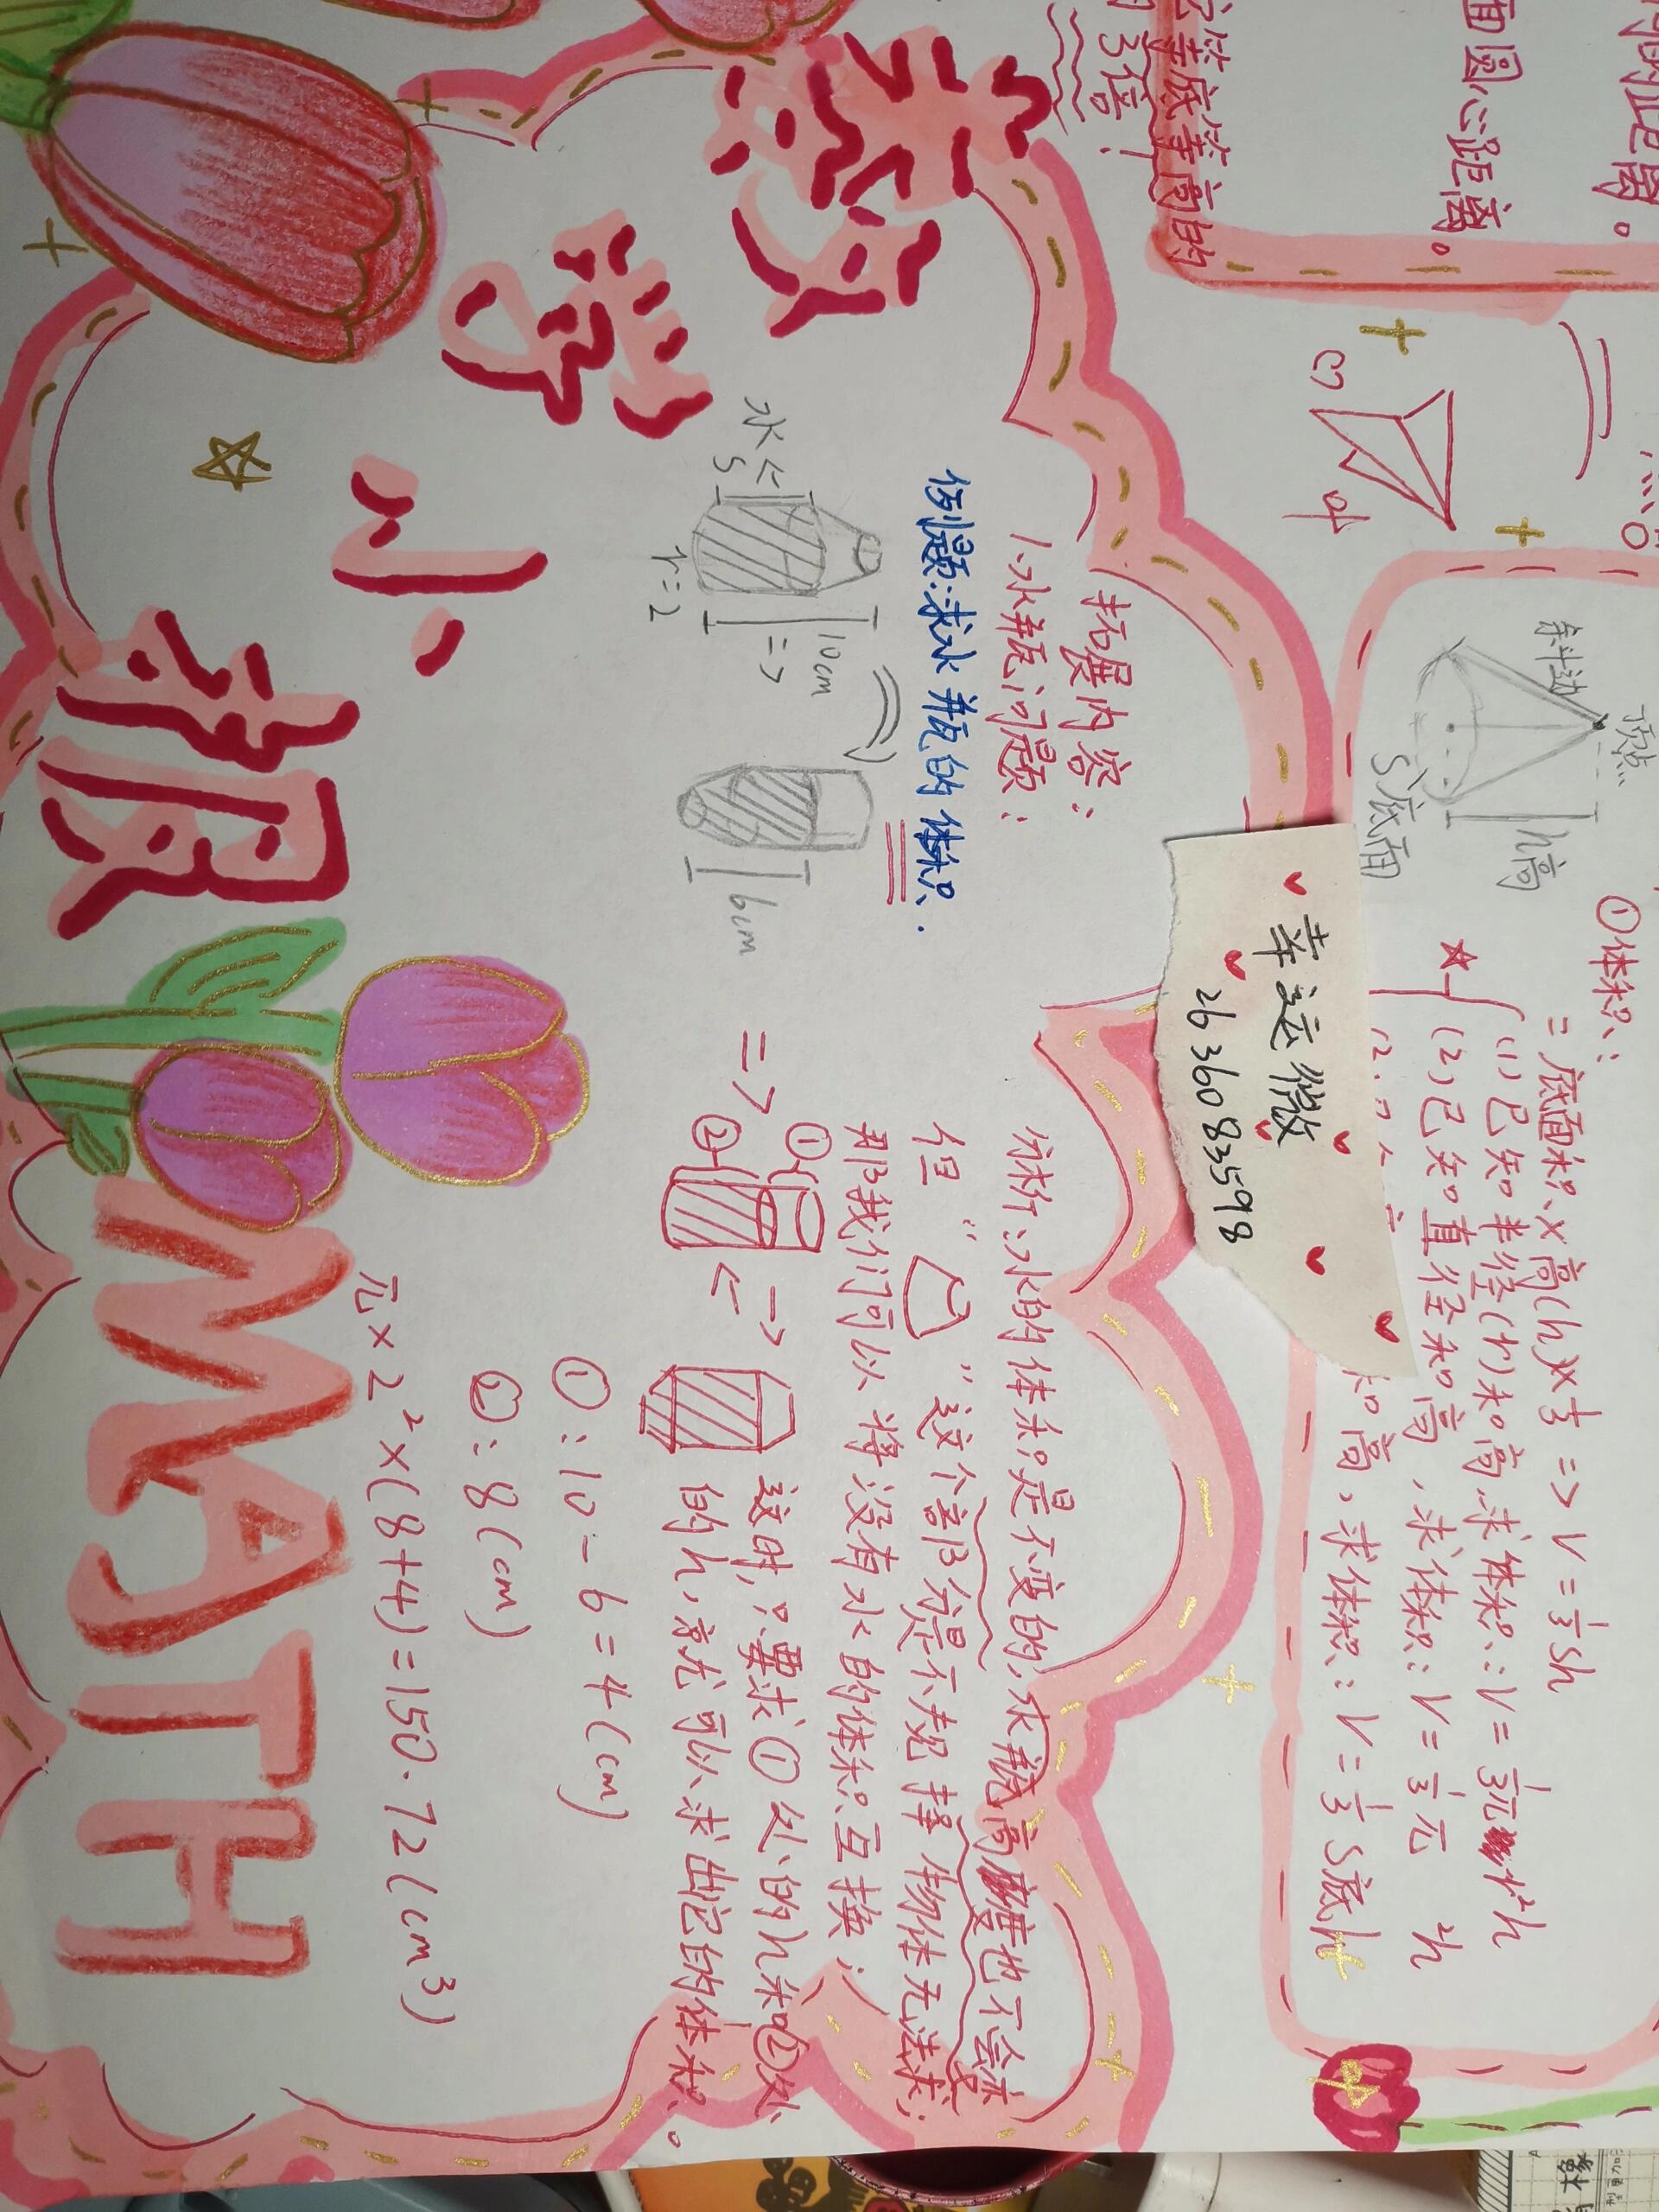 的距离。
面圆心距离。
它等底等高的
的3倍！
顶点
斜边
h高
S底面
①体积：
=底面积×高(h)×1/3 => V=1/3Sh
(1)已知半径(r)和高，求体积：V=1/3πr²h
(2)已知直径和高，求体积：V=1/3π
²h
和高，求体积：V=1/3S底h
幸运微
2636083598
数学
小报
MATH
拓展内容：
1.水瓶问题：
例题：求水瓶的体积.
水<=
S
10cm
=>
r=2
6cm
=>
分析：水的体积是不变的，水瓶高度也不会变
但“ ”这个部分是不规择物体无法求；
那我们可以将没有水的体积互换；
①
②
这时，只要求①处的h和②处
的h，就可以求出它的体积。
①：10-6=4(cm)
②：8(cm)
π×2²×(8+4)=150.72(cm³)
橡